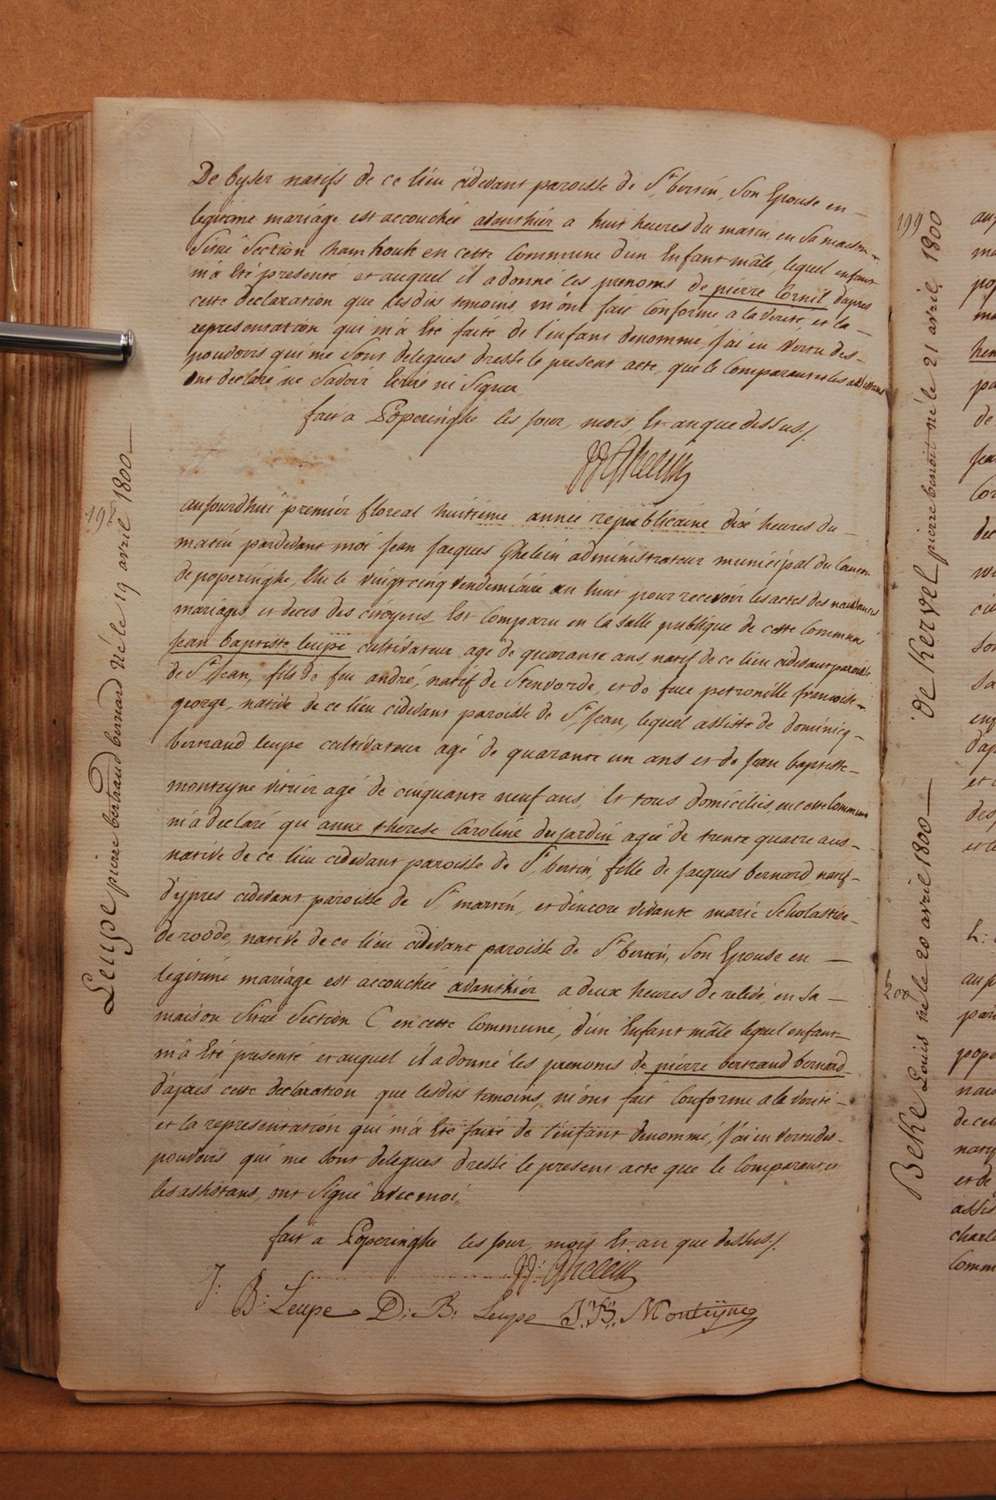 De byser natifs de ce lieu cidevant paroisse de St bertin, son Epouse en —
legitime mariage est accouchée avanthier a huit heures du matin en sa maison
situé section hamhouk en cette Commune d'un Enfant mâle, lequel enfant
m'a été presenté et auquel il a donné les prenoms de pierre Cornil d'apres
cette declaration que lesdits temoins m'ont fait Conforme a la verité, et la —
representation qui m'a été faite de l'enfant denommé, j'ai en vertu des —
pouvoirs qui me sont delegues dressé le present acte, que le Comparant et les assistans
ont declaré ne savoir ecrire ni signer
fait a Poperinghe les jour, mois Et an que dessus /.
JJ Ghelein
197
Leupe pierre bertrand bernard né le 19 avril 1800 —
aujourdhui premiér floreal huitieme année republicaine dix heures du —
matin pardevant moi Jean Jacques Ghelein administrateur municipal du Canton
de poperinghe, Elu le vingt cinq vendemiaire an huit pour recevoir les actes des naissances
mariages et deces des citoyens Est Comparu en la salle publique de cette Commune
Jean baptiste leupe cultivateur agé de quarante ans, natif de ce lieu cidevant paroisse
de St Jean, fils de feu andré, natif de Stenvorde, et de feue petronille francoise
george, native de ce lieu cidevant paroisse de St Jean, lequel assisté de dominicq —
bertrand leupe cultivateur agé de quarante un ans et de Jean baptiste —
monteyne vitrier agé de cinquante neuf ans, Et tous domiciliés en cette Commune
m'a declaré que anne therese Caroline dujardin agée de trente quatre ans —
native de ce lieu cidevant paroisse de St bertin, fille de Jacques bernard natif —
d'ypres cidevant paroisse de St martin, et d'encore vivante marie Scholastique
de roode, native de ce lieu cidevant paroisse de St bertin, Son Epouse en —
legitime mariage est accouchée avanthier a deux heures de relevé, en sa —
maison situé Section C en cette Commune, d'un Enfant mâle lequel enfant
m'a été presenté et auquel il a donné les prenoms de pierre bertrand bernard
d'apres cette declaration que lesdits temoins, m'ont fait Conforme a la verité —
et la representation qui m'a été faite de l'enfant denommé, j'ai en vertu des —
pouvoirs qui me sont delegues dressé le present acte que le Comparant et
les assistans, ont signé avec moi,
fait a Poperinghe les jour, mois Et an que dessus /.
JJ: Ghelein
J: B: Leupe D: B: Leupe J: B: Monteyne
199
de Kervel pierre benoit né le 21 avril 1800
200
Beke Louis né le 20 avril 1800 —